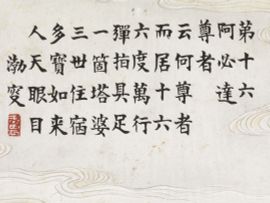 第十六
阿必達
尊者
云何尊者
而居十六
六度萬行
彈指具足
一箇塔婆
三世住宿
多寶如来
人天眼目
渤